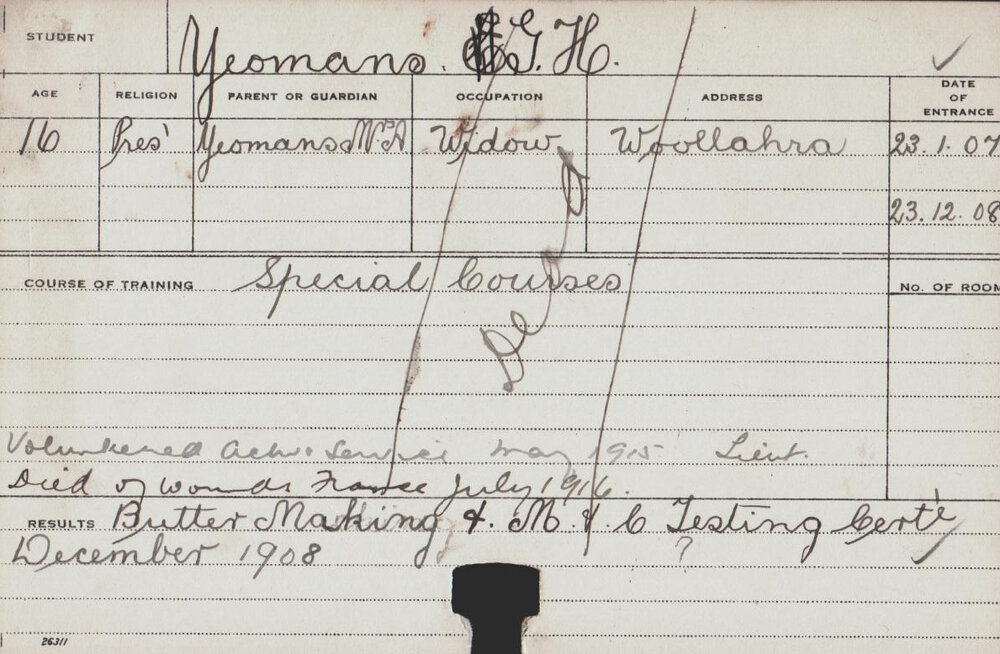 STUDENT Yeomans. G. H.
AGE RELIGION PARENT OR GUARDIAN OCCUPATION ADDRESS DATE OF ENTRANCE
16 Pres' Yeomans Mrs A Widow Woollahra 23.1.07
23.12.08
COURSE OF TRAINING Special Courses No. OF ROOM
Dead
Volunteered Active Service May 1915 Lieut.
Died of wounds France July 1916.
RESULTS Butter Making & M & C Testing Certe
December 1908 ?
26311